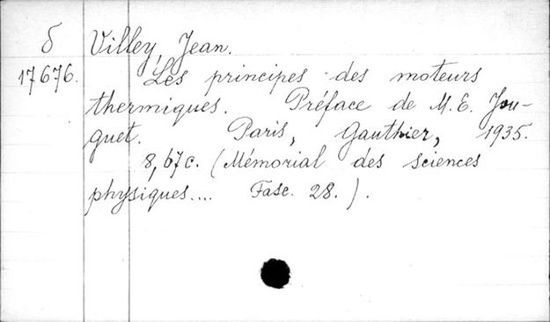 б Villey, Jean.
17676. Les principes des moteurs
thermiques. Préface de M. E. Jou-
guet. Paris, Gauthier, 1935.
8, 67c. (Mémorial des sciences
physiques.... Fasc. 28.).